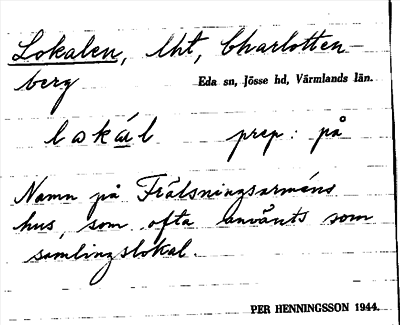 Lokalen, lht, Charlotten-
berg
Eda sn, Jösse hd, Värmlands län.
lokál prep: på
Namn på Frälsningsarméns
hus, som ofta använts som
samlingslokal.
PER HENNINGSSON 1944.